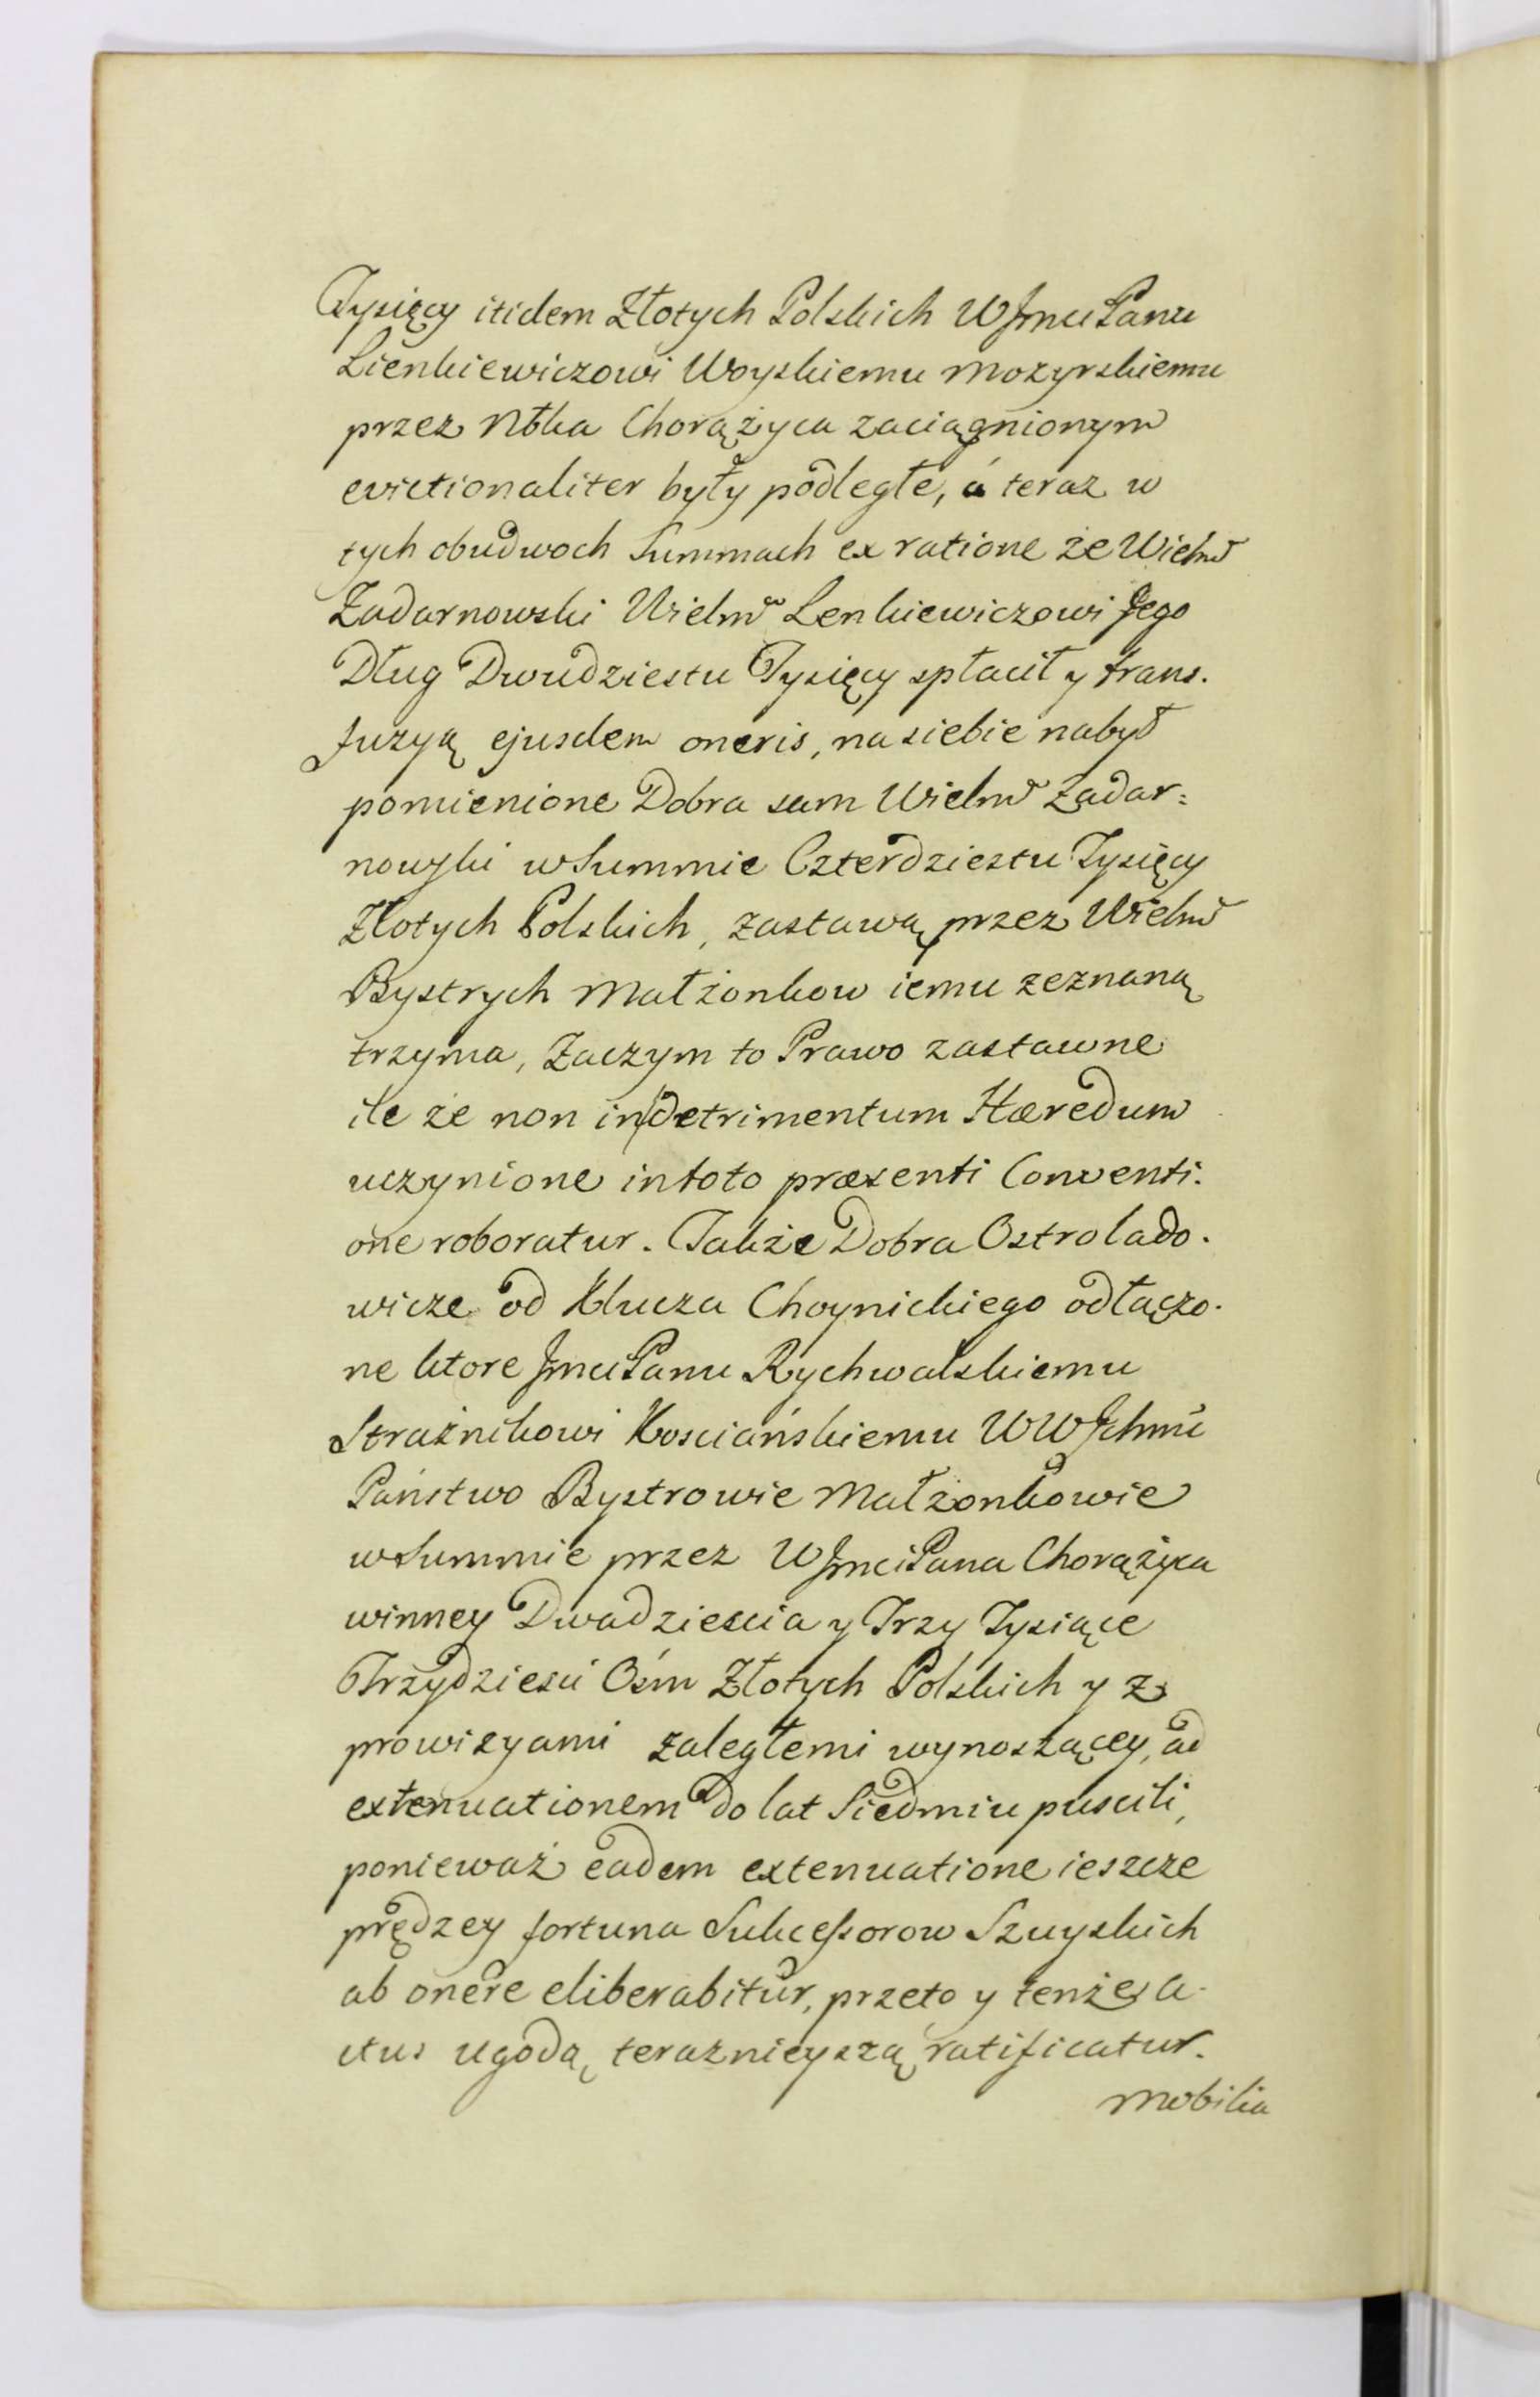 Tysięcy itidem Złotych Polskich WJmćiPanu
Lienkiewiczowi Woyskiemu Mozyrskiemu
przez Nłka Chorążyca zaciągnionym
evictionaliter były podległe, á teraz w
tych obudwoch Summach ex ratione że Wielmo
Zadarnowski Wielmu Lenkiewiczowi Jego
Dług Dwudziestu Tysięcy spłacił y trans.
fuzyą ejusdem oneris, na siebie nabył
pomienione Dobra sam Wielmo Zadar:
nowski w Summie Czterdziestu Tysięcy
Złotych Polskich, zastawą przez Wielmo
Bystrych Małżonkow iemu zeznaną
trzyma, Zaczym to Prawo zastawne
ile że non in detrimentum Hæredum
uczynione in toto præsenti Conventi.
one roboratur. Także Dobra Ostrolado.
wicze od Klucza Choynickiego odłączo.
ne ktore JmćiPanu Rychwalskiemu
Strażnikowi Kosciańskiemu WWJchmć
Państwo Bystrowie Małżonkowie
w Summie przez WJmciPana Chorążyca
winney Dwadziescia y Trzy Tysiące
Trzydziesci Ośm Złotych Polskich y z
prowizyami zaległemi wynoszącey, ad
extenuationem do lat Siedmiu puscili,
ponieważ eadem extenuatione ieszcze
prędzey fortuna Sukcessorow Szuyskich
ab onere eliberabitur, przeto y tenże a.
ctus ugodą teraznieyszą ratificatur.
Mobilia